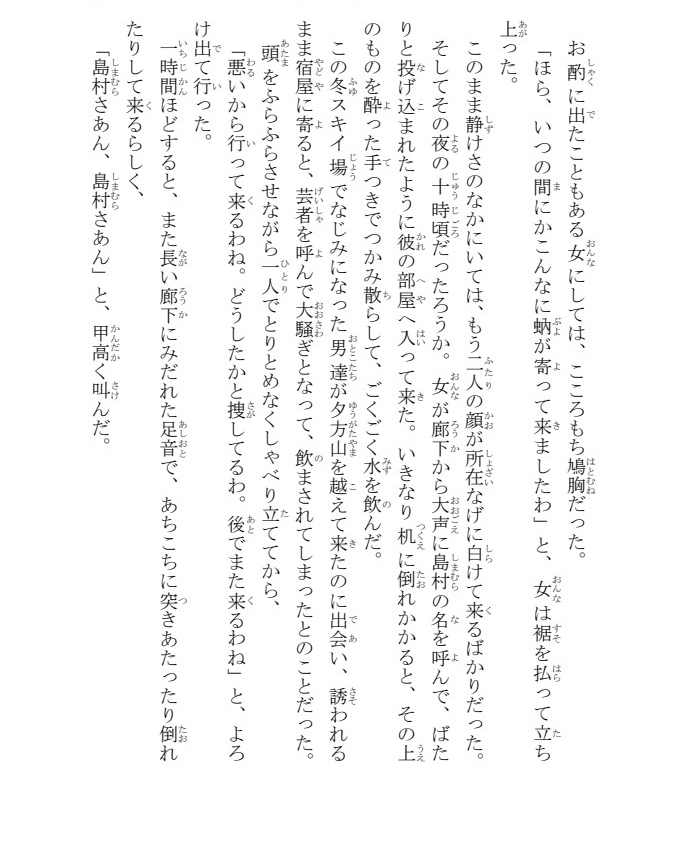 お酌に出たこともある女にしては、こころもち鳩胸だった。
「ほら、いつの間にかこんなに蚋が寄って来ましたわ」と、女は裾を払って立ち
上った。
このまま静けさのなかにいては、もう二人の顔が所在なげに白けて来るばかりだった。
そしてその夜の十時頃だったろうか。女が廊下から大声に島村の名を呼んで、ばた
りと投げ込まれたように彼の部屋へ入って来た。いきなり机に倒れかかると、その上
のものを酔った手つきでつかみ散らして、ごくごく水を飲んだ。
この冬スキイ場でなじみになった男達が夕方山を越えて来たのに出会い、誘われる
まま宿屋に寄ると、芸者を呼んで大騒ぎとなって、飲まされてしまったとのことだった。
頭をふらふらさせながら一人でとりとめなくしゃべり立ててから、
「悪いから行って来るわね。どうしたかと捜してるわ。後でまた来るわね」と、よろ
け出て行った。
一時間ほどすると、また長い廊下にみだれた足音で、あちこちに突きあたったり倒れ
たりして来るらしく、
「島村さあん、島村さあん」と、甲高く叫んだ。